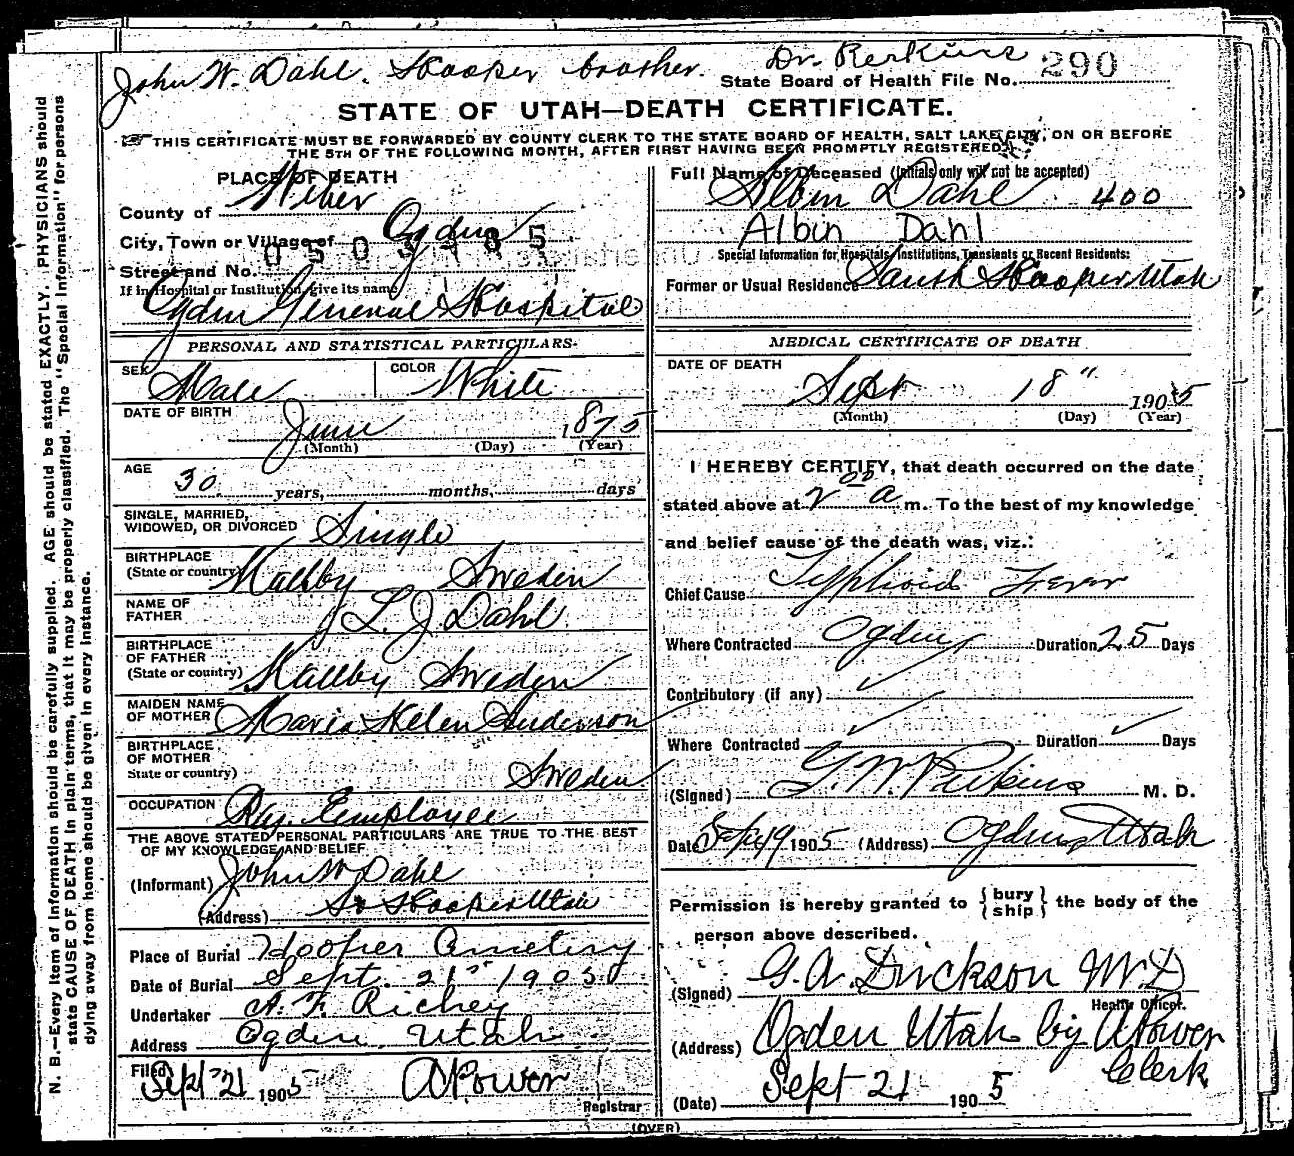 John W. Dahl. Hooper brother. Dr. Perkins
State Board of Health File No. 290
STATE OF UTAH—DEATH CERTIFICATE.
THIS CERTIFICATE MUST BE FORWARDED BY COUNTY CLERK TO THE STATE BOARD OF HEALTH, SALT LAKE CITY, ON OR BEFORE
THE 5TH OF THE FOLLOWING MONTH, AFTER FIRST HAVING BEEN PROMPTLY REGISTERED.
PLACE OF DEATH
County of Weber
City, Town or Village of Ogden
Street and No.
If in Hospital or Institution, give its name
Ogden General Hospital
PERSONAL AND STATISTICAL PARTICULARS
SEX Male COLOR White
DATE OF BIRTH June 1875
(Month) (Day) (Year)
AGE 30 years, months, days
SINGLE, MARRIED,
WIDOWED, OR DIVORCED Single
BIRTHPLACE
(State or country) Sweden
NAME OF
FATHER L. J. Dahl
BIRTHPLACE
OF FATHER
(State or country) Sweden
MAIDEN NAME
OF MOTHER Maria Helen Anderson
BIRTHPLACE
OF MOTHER
State or country) Sweden
OCCUPATION Ry. Employee
THE ABOVE STATED PERSONAL PARTICULARS ARE TRUE TO THE BEST
OF MY KNOWLEDGE AND BELIEF
(Informant) John W Dahl
(Address) So Hooper Utah
Place of Burial Hooper Cemetery
Date of Burial Sept. 21st 1905
Undertaker A. F. Richey
Address Ogden, Utah
Filed Sept 21 1905 A Power
Registrar
Full Name of Deceased (Initials only will not be accepted)
Albin Dahl 400
Albin Dahl
Special Information for Hospitals, Institutions, Transients or Recent Residents:
Former or Usual Residence South Hooper Utah
MEDICAL CERTIFICATE OF DEATH
DATE OF DEATH
Sept 18" 1905
(Month) (Day) (Year)
I HEREBY CERTIFY, that death occurred on the date
stated above at 2 00 a m. To the best of my knowledge
and belief cause of the death was, viz.:
Chief Cause Typhoid Fever
Where Contracted Ogden Duration 25 Days
Contributory (if any)
Where Contracted Duration Days
(Signed) G. W. Perkins M. D.
Date Sept 19 1905 (Address) Ogden Utah
Permission is hereby granted to { bury ship } the body of the
person above described.
(Signed) G. A. Dickson M.D
Health Officer.
(Address) Ogden Utah by A Power
Clerk
(Date) Sept 21 1905
(OVER)
N. B.—Every item of Information should be carefully supplied. AGE should be stated EXACTLY. PHYSICIANS should
state CAUSE OF DEATH in plain terms, that it may be properly classified. The "Special Information" for persons
dying away from home should be given in every instance.